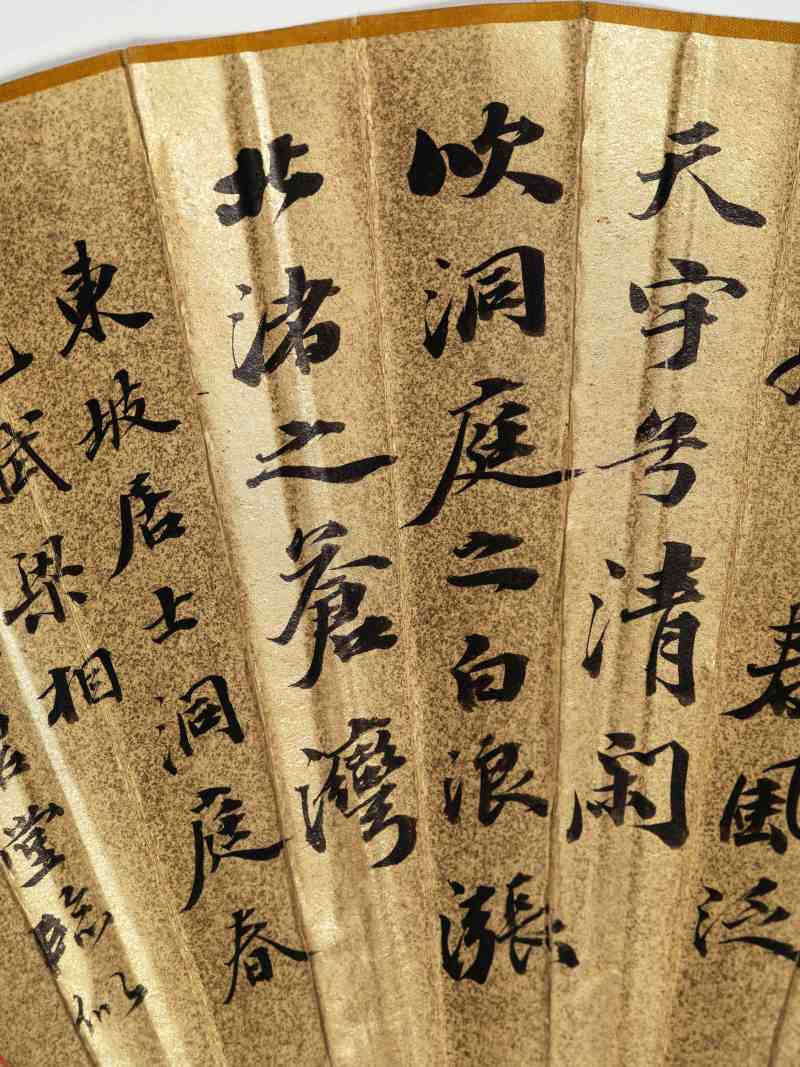 春風泛
天宇兮清閑
吹洞庭之白浪漲
北渚之蒼灣
東坡居士洞庭春
賦恩相
堂臨似